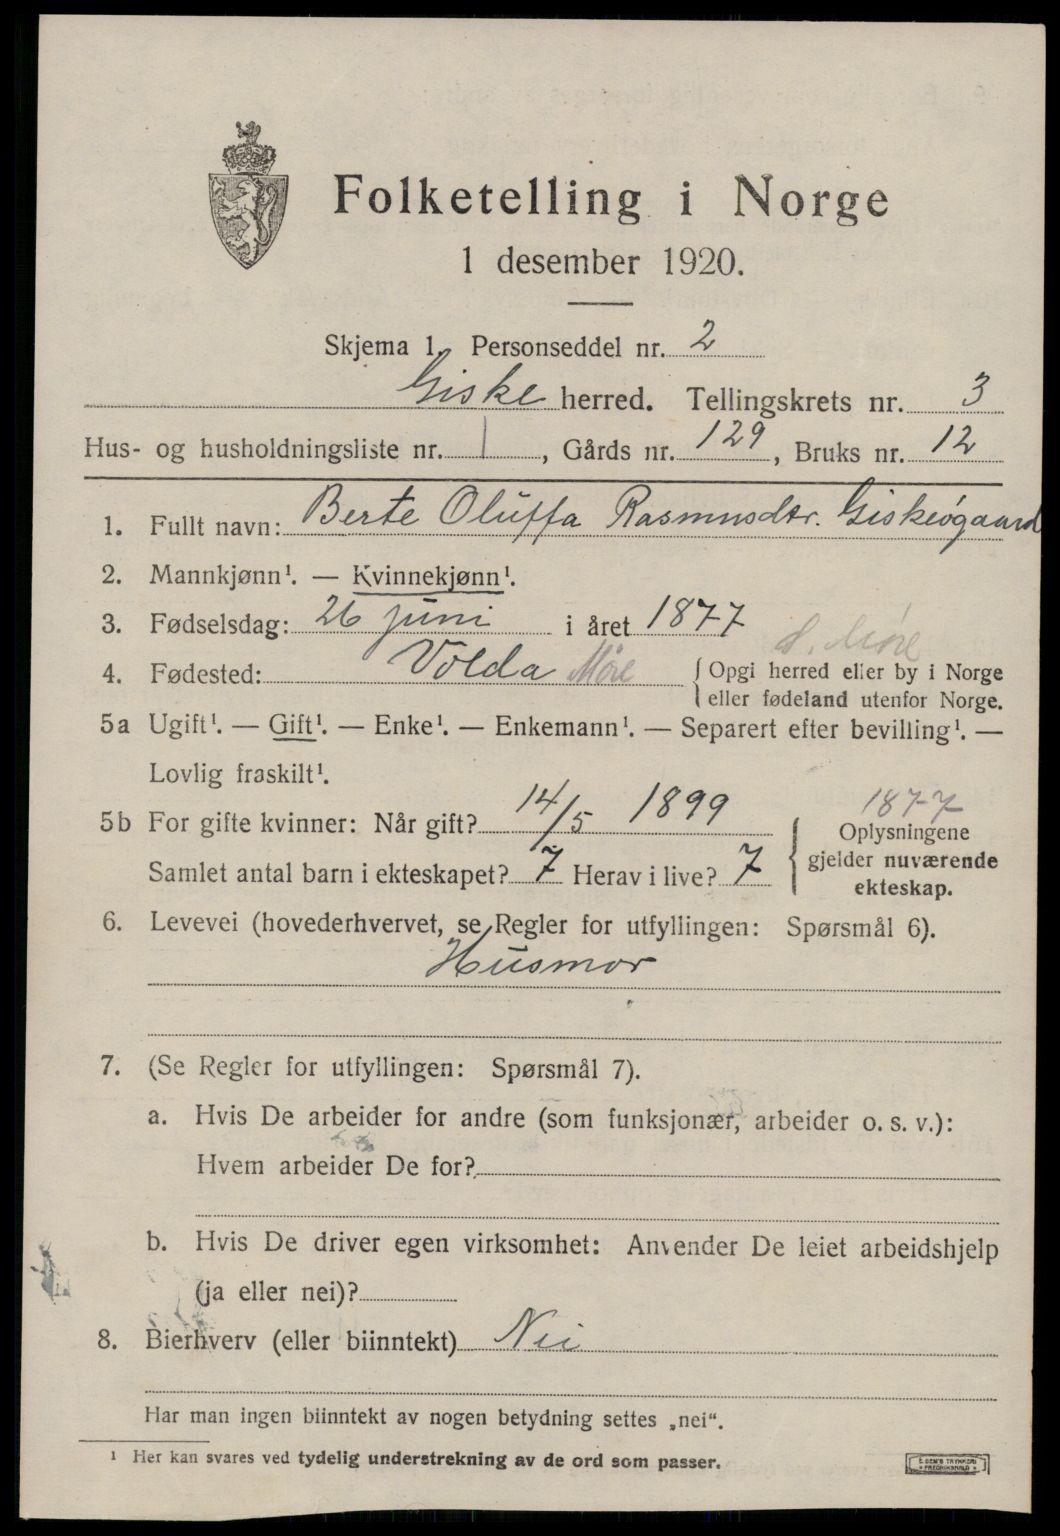 Folketelling i Norge
1 desember 1920.
Skjema 1. Personseddel nr. 2
Giske herred. Tellingskrets nr. 3
Hus- og husholdningsliste nr. 1, Gårds nr. 129, Bruks nr. 12
1. Fullt navn: Berte Oluffa Rasmusdtr. Giskeøgaard
2. Mannkjønn¹. — Kvinnekjønn¹.
3. Fødselsdag: 26 juni i året 1877
S. Møre
4. Fødested: Volda Møre { Opgi herred eller by i Norge
eller fødeland utenfor Norge.
5a Ugift¹. — Gift¹. — Enke¹. — Enkemann¹. — Separert efter bevilling¹. —
Lovlig fraskilt¹.
5b For gifte kvinner: Når gift? 14/5 1899
Samlet antal barn i ekteskapet? 7 Herav i live? 7
1877
Oplysningene
gjelder nuværende
ekteskap.
6. Levevei (hovederhvervet, se Regler for utfyllingen: Spørsmål 6).
Husmor
7. (Se Regler for utfyllingen: Spørsmål 7).
a. Hvis De arbeider for andre (som funksjonær, arbeider o. s. v.):
Hvem arbeider De for?
b. Hvis De driver egen virksomhet: Anvender De leiet arbeidshjelp
(ja eller nei)?
8. Bierhverv (eller biinntekt) Nei
Har man ingen biinntekt av nogen betydning settes „nei“.
¹ Her kan svares ved tydelig understrekning av de ord som passer.